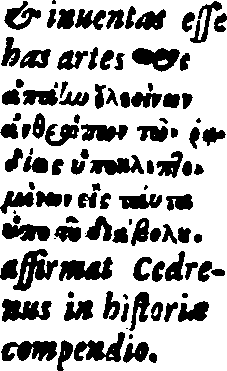 & inuentas eſſe
has artes
ἀνθρώπων τῶν
ὑποκλεπτο-
μένων εἰς ταύτα
ὑπὸ τοῦ διαβόλου.
affirmat Cedre-
nus in hiſtoriæ
compendio.